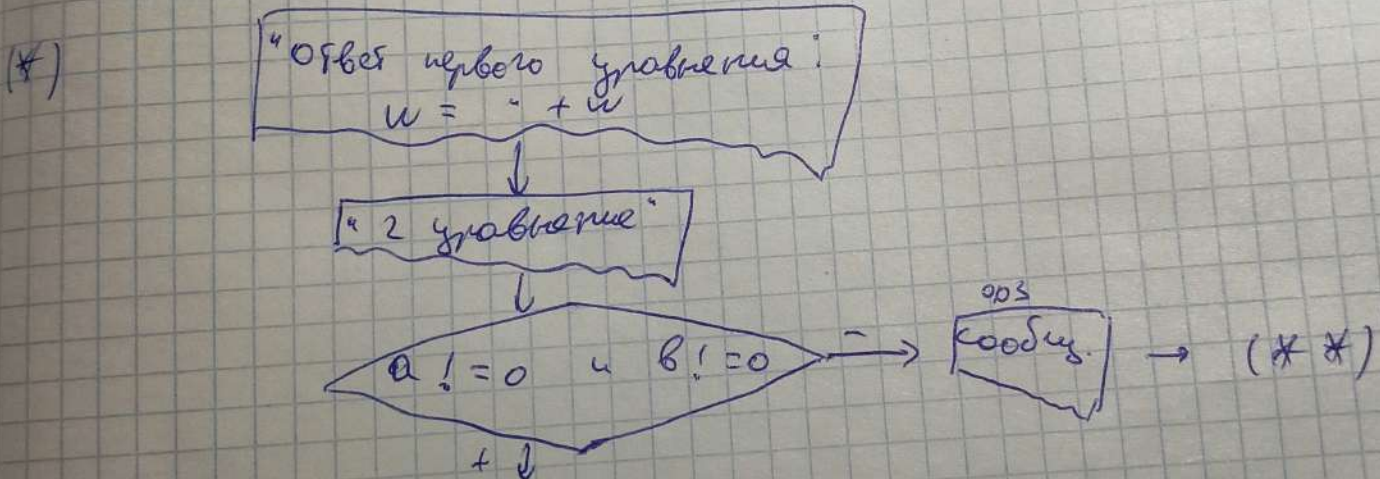 (*)
"Ответ первого уравнения:
u = " + u
"2 уравнение"
a != 0 и b != 0
-
ОДЗ
сообщ.
(* *)
+